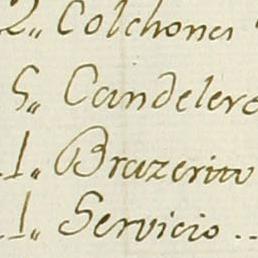 2,, Colchones
5,, Candelero
1,, Brazerito
1,, Servicio ..